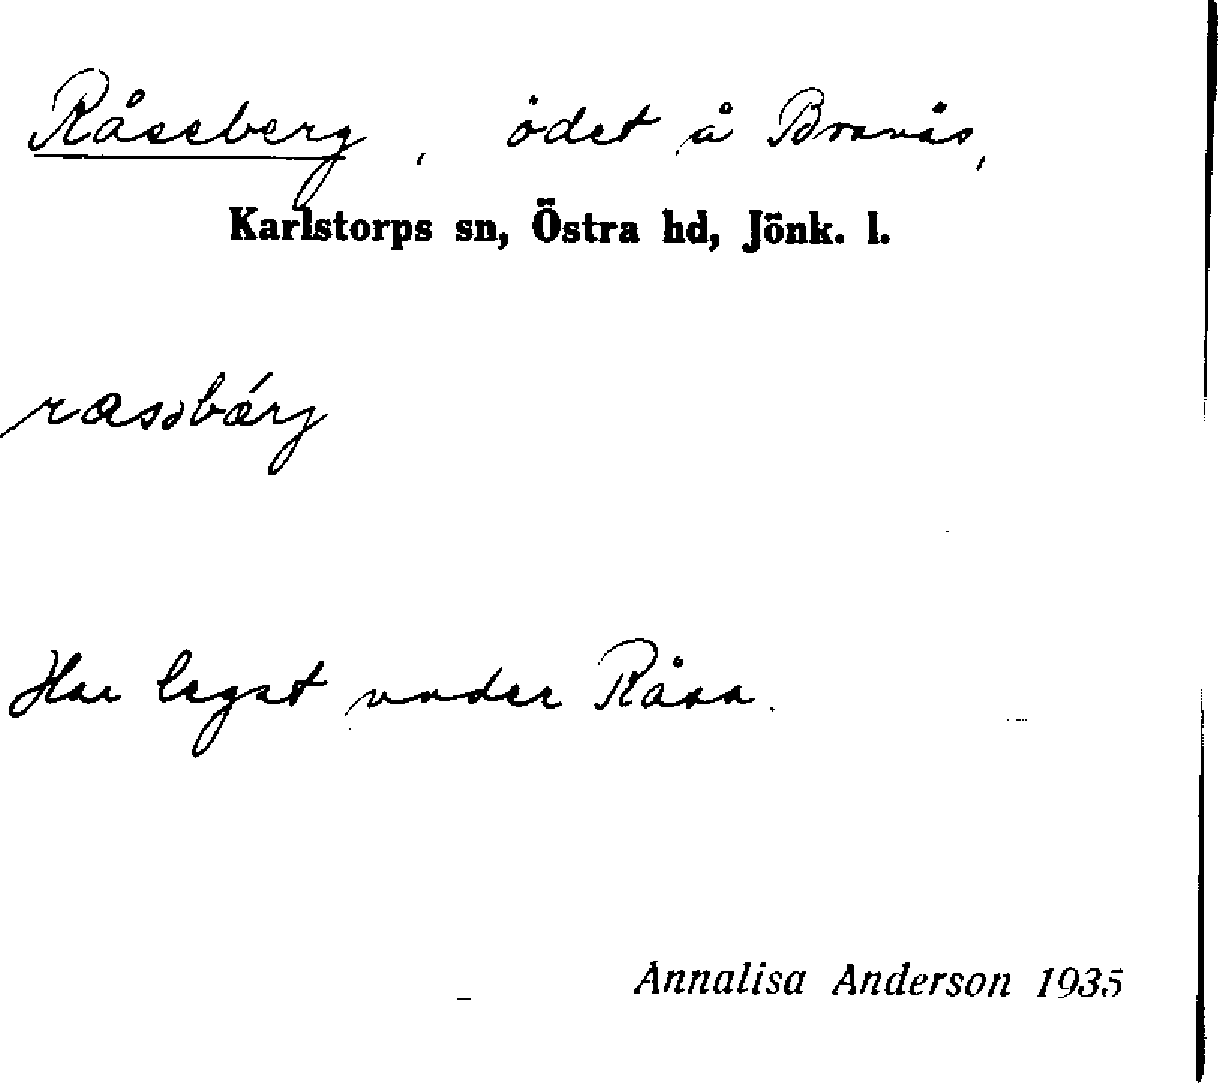 Råseberg, ödet å Bravås,
Karlstorps sn, Östra hd, Jönk. l.
Har legat under Råsa.
Annalisa Anderson 1935